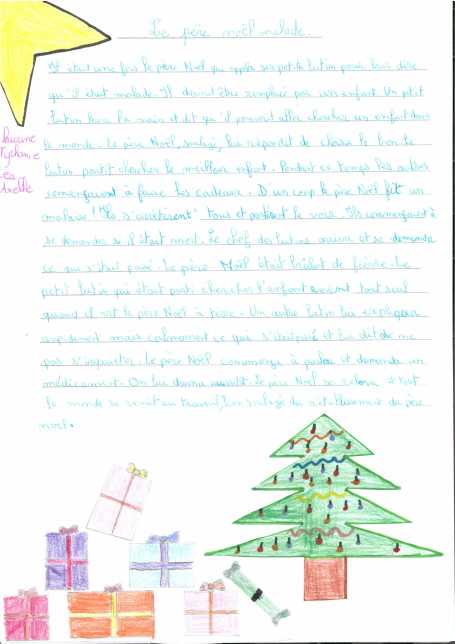 Le père noël malade.
Il était une fois le père Noël qui appela ses petits lutins pour leur dire
qu'il était malade. Il devait être remplacé par un enfant. Un petit
lutin leva la main et dit qu'il pouvait aller chercher un enfant dans
le monde. Le père Noël, soulagé, lui répondit de choisir le bon. Le
lutin partit chercher le meilleur enfant. Pendant ce temps les autres
commençaient à faire les cadeaux. D'un coup le père Noël fit un
malaise ! Ils s'arrêtèrent tous et partirent le voir. Ils commençaient à
se demander si il était mort. Le chef des lutins arriva et se demanda
ce qui s'était passé. Le père Noël était brûlant de fièvre. Le
petit lutin qui était parti chercher l'enfant revient tout seul
quand il vit le père Noël à terre. Un autre lutin lui expliqua
rapidement mais calmement ce qui s'était passé et lui dit de ne
pas s'inquiéter. Le père Noël commença à parler et demanda un
médicament. On lui donna aussitôt. Le père Noël se releva et tout
le monde se remit au travail, soulagé du rétablissement du père
noël.
Lucine
Lea
Axelle